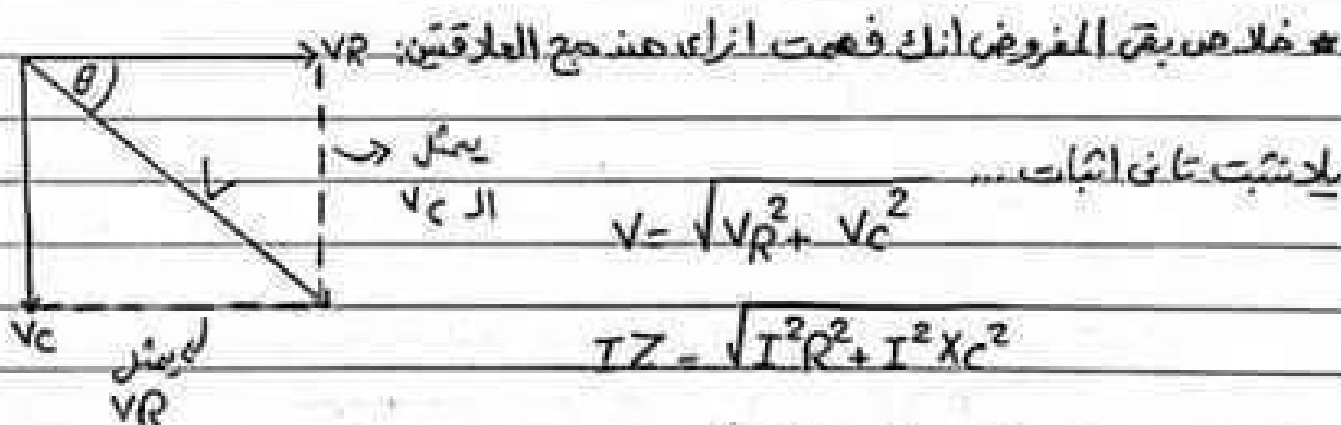 * خلاص بقى المفروض انك فهمت ازاى هندمج العلاقتين:
VR
θ
يمثل
الـ VC
V
يلا نثبت تانى اثبات ...
V = √VR² + VC²
VC
يمثل
VR
IZ = √I²R² + I²XC²